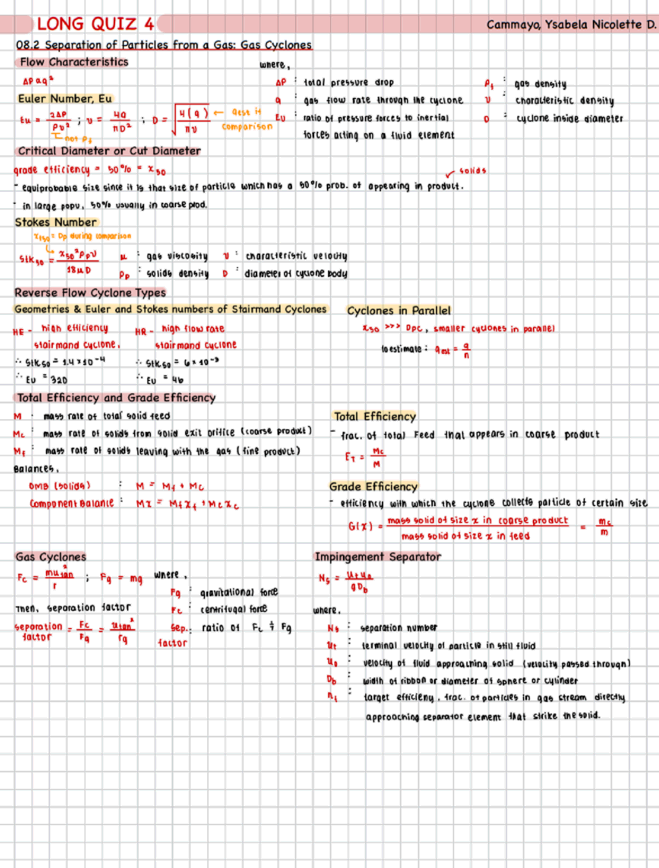 LONG QUIZ 4
Cammayo, Ysabela Nicolette D.
08.2 Separation of Particles from a Gas: Gas Cyclones
Flow Characteristics
ΔP α q²
where,
ΔP : total pressure drop
q : gas flow rate through the cyclone
Eu : ratio of pressure forces to inertial
forces acting on a fluid element
ρf : gas density
υ : characteristic density
D : cyclone inside diameter
Euler Number, Eu
Eu = 2ΔP / ρυ² ; υ = 4q / πD² ; D = √(4(q) / πυ) ← best H comparison
not ρf
Critical Diameter or Cut Diameter
grade efficiency = 50% = x50
solids
- equiprobable size since it is that size of particle which has a 50% prob. of appearing in product.
- in large popu, 50% usually in coarse prod.
Stokes Number
x50 = Dp during comparison
Stk50 = x50² ρp υ / 18μD
μ : gas viscosity υ : characteristic velocity
ρp : solids density D : diameter of cyclone body
Reverse Flow Cyclone Types
Geometries & Euler and Stokes numbers of Stairmand Cyclones
HE - high efficiency
stairmand cyclone.
∴ Stk50 = 1.4 x 10⁻⁴
∴ Eu = 320
HR - high flow rate
stairmand cyclone
∴ Stk50 = 6 x 10⁻³
∴ Eu = 46
Cyclones in Parallel
x50 >>> Dpc, smaller cyclones in parallel
to estimate : = q / n
Total Efficiency and Grade Efficiency
M : mass rate of total solid feed
Mc : mass rate of solids from solid exit orifice (coarse product)
Mf : mass rate of solids leaving with the gas (fine product)
Balances,
OMB (solids) : M = Mf + Mc
Component Balance : Mx = Mfxf + Mcxc
Total Efficiency
- frac. of total Feed that appears in coarse product
ET = Mc / M
Grade Efficiency
- efficiency with which the cyclone collects particle of certain size
G(x) = mass solid of size x in coarse product / mass solid of size x in feed = mc / m
Gas Cyclones
Fc = mu²tan / r ; Fg = mg where,
Fg : gravitational force
Fc : centrifugal force
Sep. factor : ratio of Fc & Fg
Then, separation factor
separation factor = Fc / Fg = u²tan / rg
Impingement Separator
Ns = utuo / gDb
where,
Ns : separation number
ut : terminal velocity of particle in still fluid
uo : velocity of fluid approaching solid (velocity passed through)
Db : width of ribbon or diameter of sphere or cylinder
ηt : target efficieny, frac. of particles in gas stream directly
approaching separator element that strike the solid.